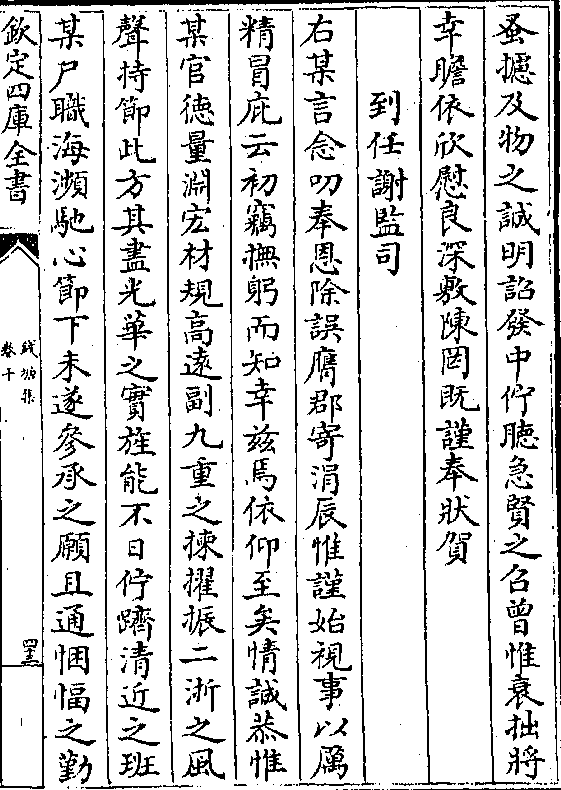 蚤攄及物之誠明詔發中佇聽急賢之召曾惟衰拙將
幸瞻依欣慰良深敷陳罔既謹奉狀賀
到任謝監司
右某言念叨奉恩除誤膺郡寄涓辰惟謹始視事以厲
精冒庇云初竊撫躬而知幸兹焉依仰至矣情誠恭惟
某官徳量淵宏材規高逺副九重之揀擢振二浙之風
聲持節此方其盡光華之實旌能不日佇躋清近之班
某尸職海瀕馳心節下未遂參承之願且通悃愊之勤
欽定四庫全書
錢塘集
卷十